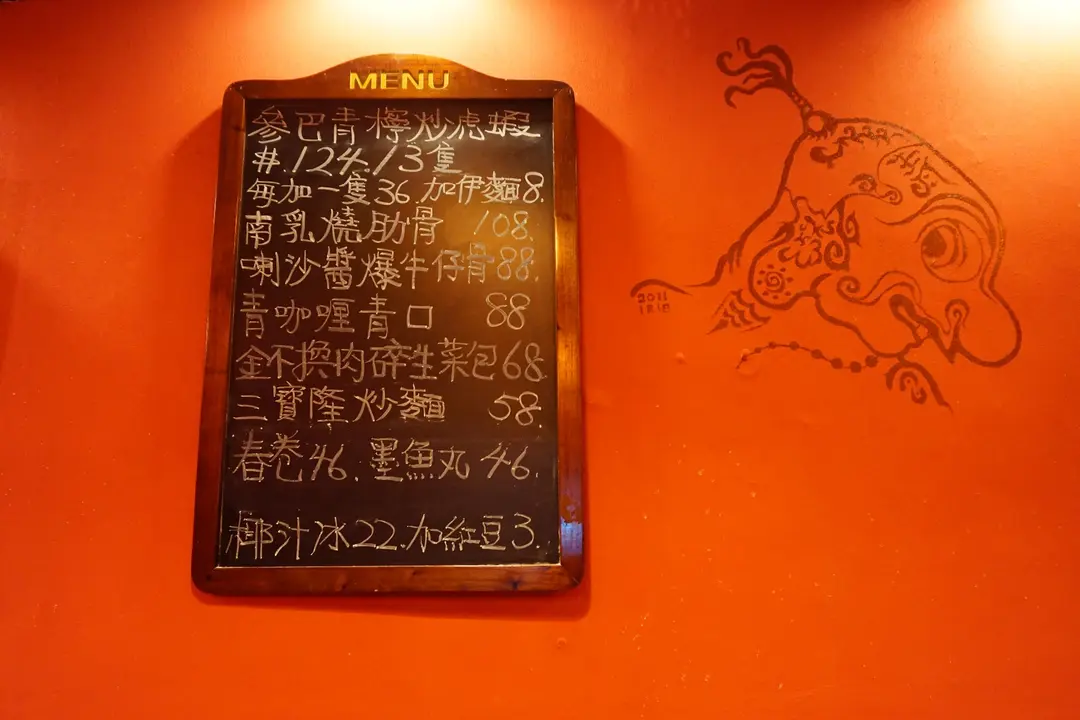 MENU
參巴青檸炒虎蝦
#.124./3隻
每加一隻36.加伊麵8.
南乳燒肋骨 108.
喇沙醬爆牛仔骨88.
青咖喱青口 88
金不換肉碎生菜包68.
三寶隆炒麵 58.
春卷46.墨魚丸46.
椰汁冰22.加紅豆3.
2011
IRIE